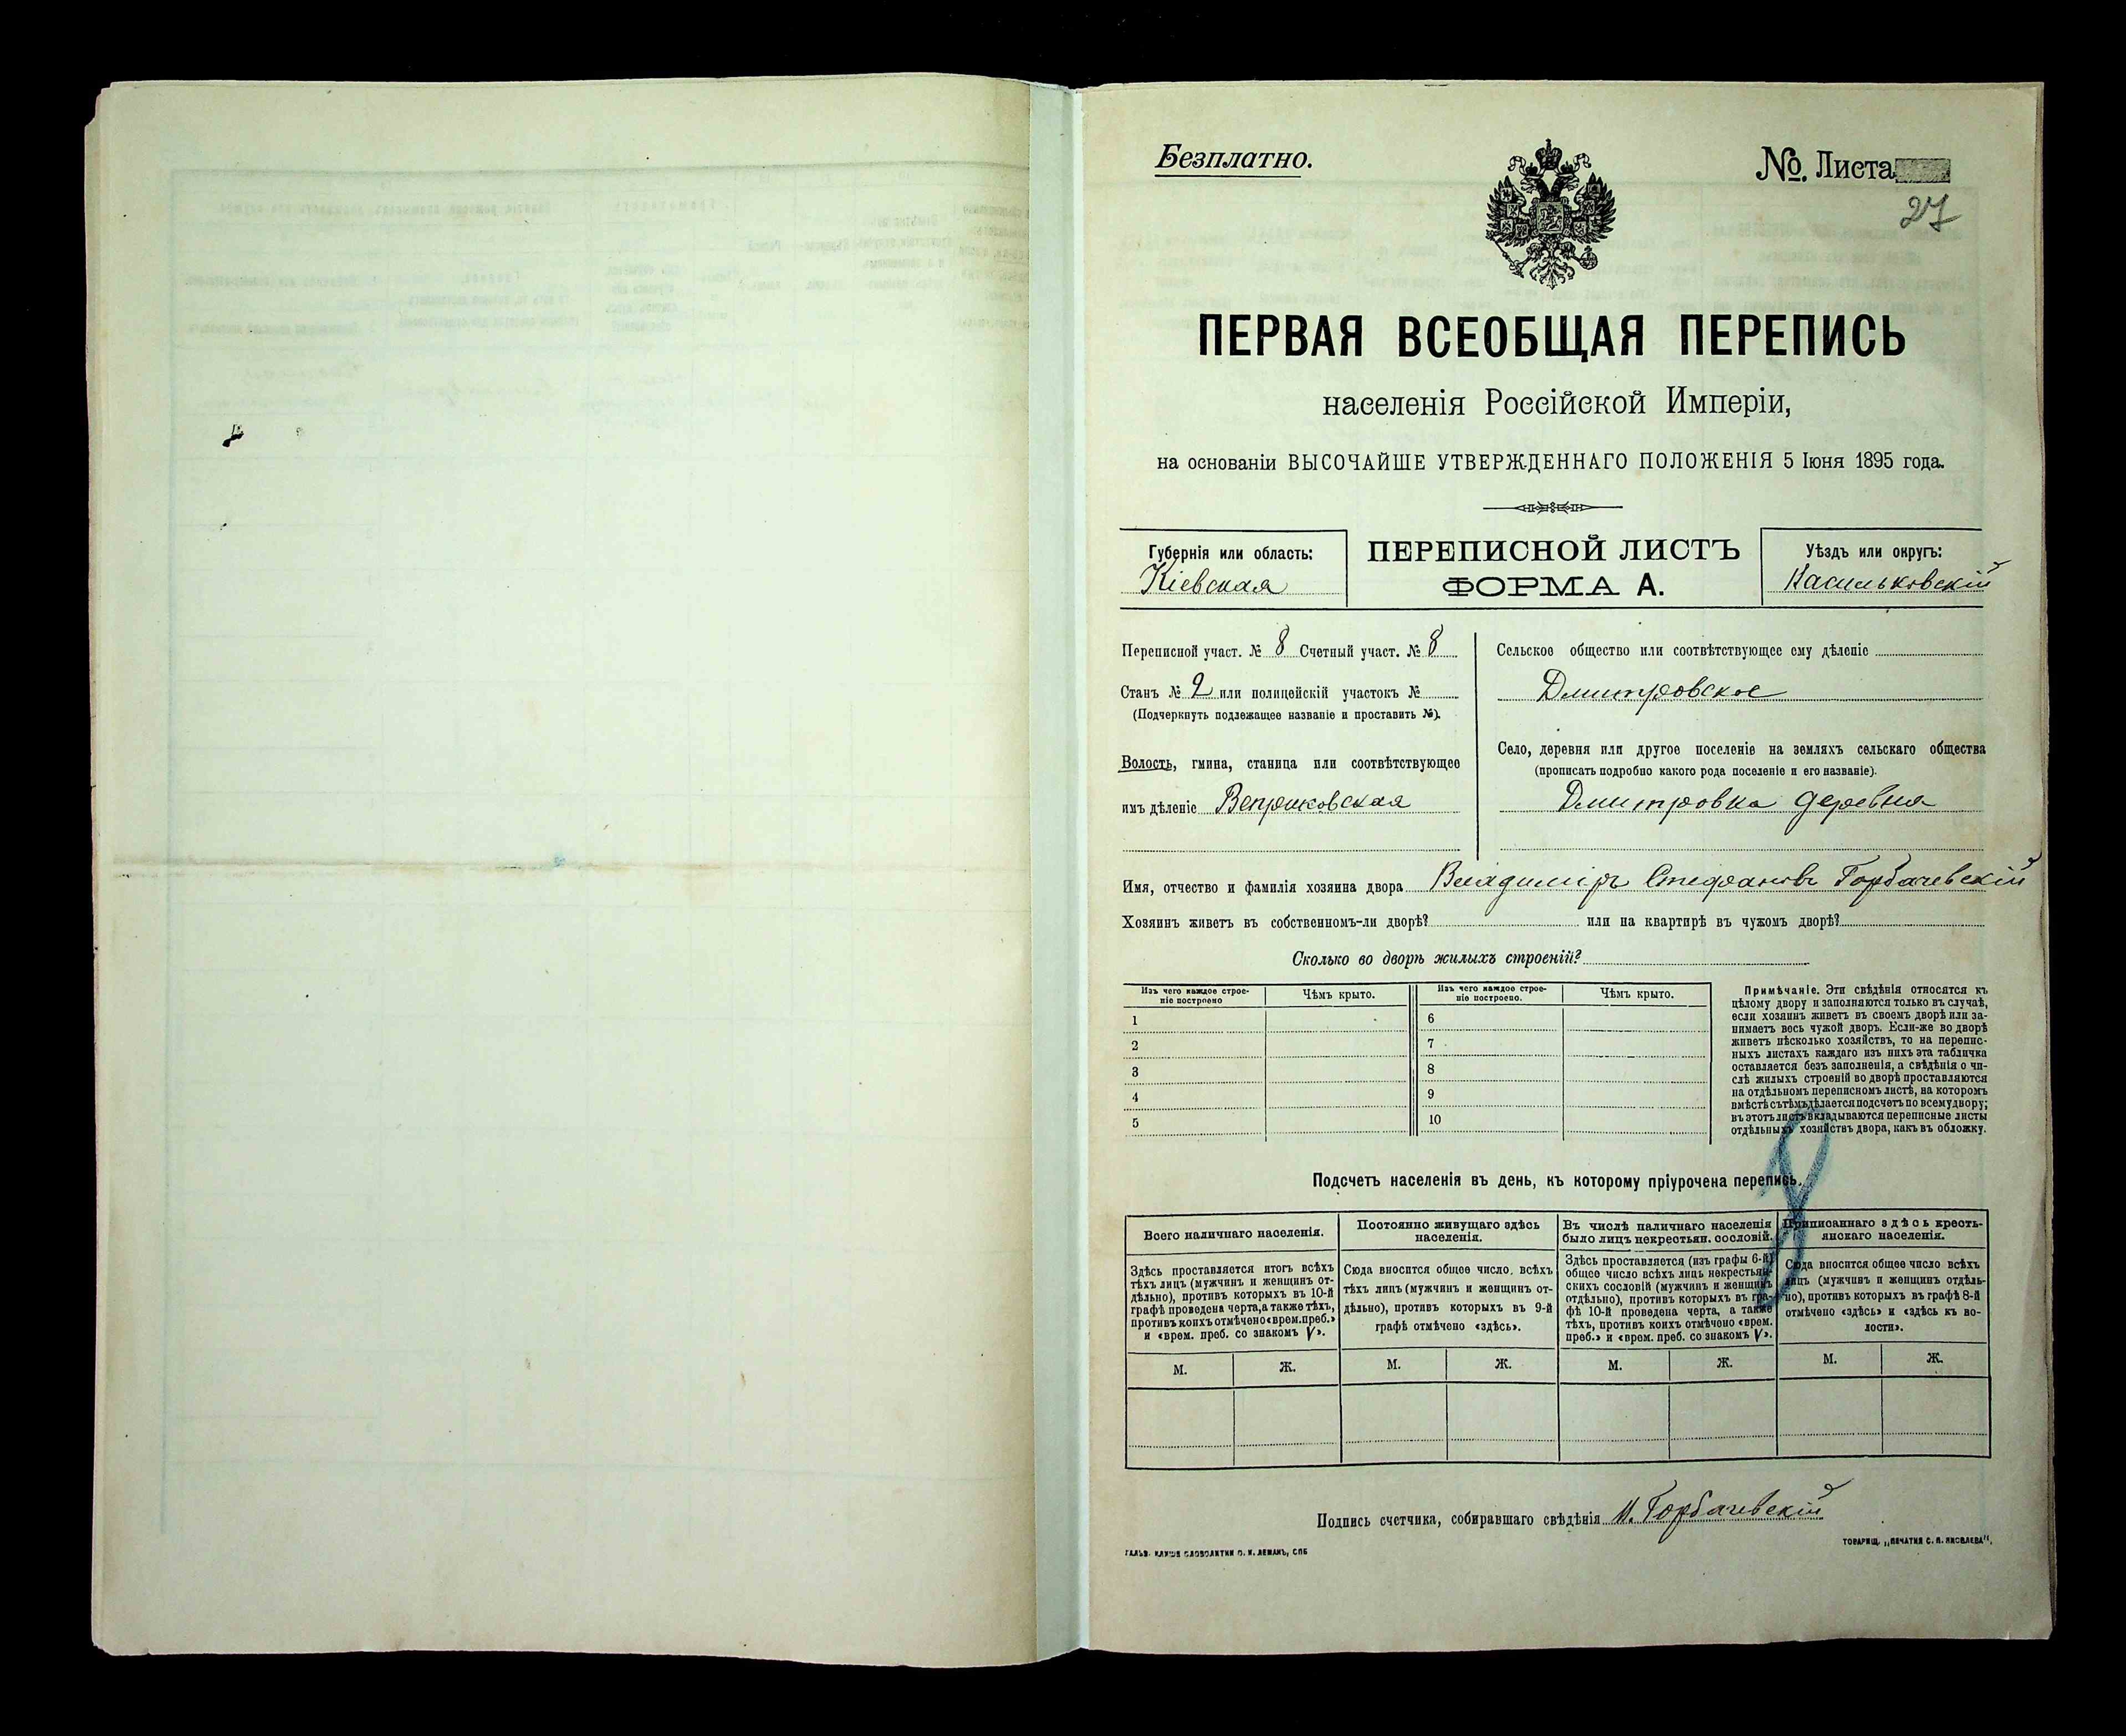 Безплатно.
№. Листа
27
ПЕРВАЯ ВСЕОБЩАЯ ПЕРЕПИСЬ
населенія Россійской Имперіи,
на основаніи ВЫСОЧАЙШЕ УТВЕРЖДЕННАГО ПОЛОЖЕНІЯ 5 Іюня 1895 года.
Губернія или область:
Кіевская
ПЕРЕПИСНОЙ ЛИСТЪ
ФОРМА А.
Уѣздъ или округъ:
Васильковскій
Переписной участ. № 8 Счетный участ. № 8
Станъ № 2 или полицейскій участокъ №
(Подчеркнуть подлежащее названіе и проставить №).
Волость, гмина, станица или соотвѣтствующее
имъ дѣленіе Веприковская
Сельское общество или соотвѣтствующее ему дѣленіе
Дмитровское
Село, деревня или другое поселеніе на земляхъ сельскаго общества
(прописать подробно какого рода поселеніе и его названіе).
Дмитровка деревня
Имя, отчество и фамилія хозяина двора Владиміръ Стефановъ Горбачевскій
Хозяинъ живетъ въ собственномъ-ли дворѣ? или на квартирѣ въ чужомъ дворѣ?
Сколько во дворѣ жилыхъ строеній?
Изъ чего каждое строе-
ніе построено
Чѣмъ крыто.
Изъ чего каждое строе-
ніе построено.
Чѣмъ крыто.
1 6
2 7
3 8
4 9
5 10
Примѣчаніе. Эти свѣдѣнія относятся къ
цѣлому двору и заполняются только въ случаѣ,
если хозяинъ живетъ въ своемъ дворѣ или за-
нимаетъ весь чужой дворъ. Если-же во дворѣ
живетъ нѣсколько хозяйствъ, то на перепис-
ныхъ листахъ каждаго изъ нихъ эта табличка
оставляется безъ заполненія, а свѣдѣнія о чи-
слѣ жилыхъ строеній во дворѣ проставляются
на отдѣльномъ переписномъ листѣ, на которомъ
вмѣстѣ съ тѣмъ дѣлается подсчетъ по всему двору;
въ этотъ листъ вкладываются переписные листы
отдѣльныхъ хозяйствъ двора, какъ въ обложку.
Подсчетъ населенія въ день, къ которому пріурочена перепись.
Всего наличнаго населенія.
Здѣсь проставляется итогъ всѣхъ
тѣхъ лицъ (мужчинъ и женщинъ от-
дѣльно), противъ которыхъ въ 10-й
графѣ проведена черта, а также тѣхъ,
противъ коихъ отмѣчено «врем. преб.»
и «врем. преб. со знакомъ V».
Постоянно живущаго здѣсь
населенія.
Сюда вносится общее число всѣхъ
тѣхъ лицъ (мужчинъ и женщинъ от-
дѣльно), противъ которыхъ въ 9-й
графѣ отмѣчено «здѣсь».
Въ числѣ наличнаго населенія
было лицъ некрестьян. сословій.
Здѣсь проставляется (изъ графы 6-й)
общее число всѣхъ лицъ некрестьян-
скихъ сословій (мужчинъ и женщинъ
отдѣльно), противъ которыхъ въ гра-
фѣ 10-й проведена черта, а также
тѣхъ, противъ коихъ отмѣчено «врем.
преб.» и «врем. преб. со знакомъ V».
Приписаннаго здѣсь кресть-
янскаго населенія.
Сюда вносится общее число всѣхъ
лицъ (мужчинъ и женщинъ отдѣль-
но), противъ которыхъ въ графѣ 8-й
отмѣчено «здѣсь» и «здѣсь къ во-
лости».
М. Ж. М. Ж. М. Ж. М. Ж.
Подпись счетчика, собиравшаго свѣдѣнія Горбачевскій
ГАЛЬВ. КЛИШЕ СЛОВОЛИТНИ О. И. ЛЕМАНЪ, СПБ
ТОВАРИЩ. „ПЕЧАТНЯ С. П. ЯКОВЛЕВА“,